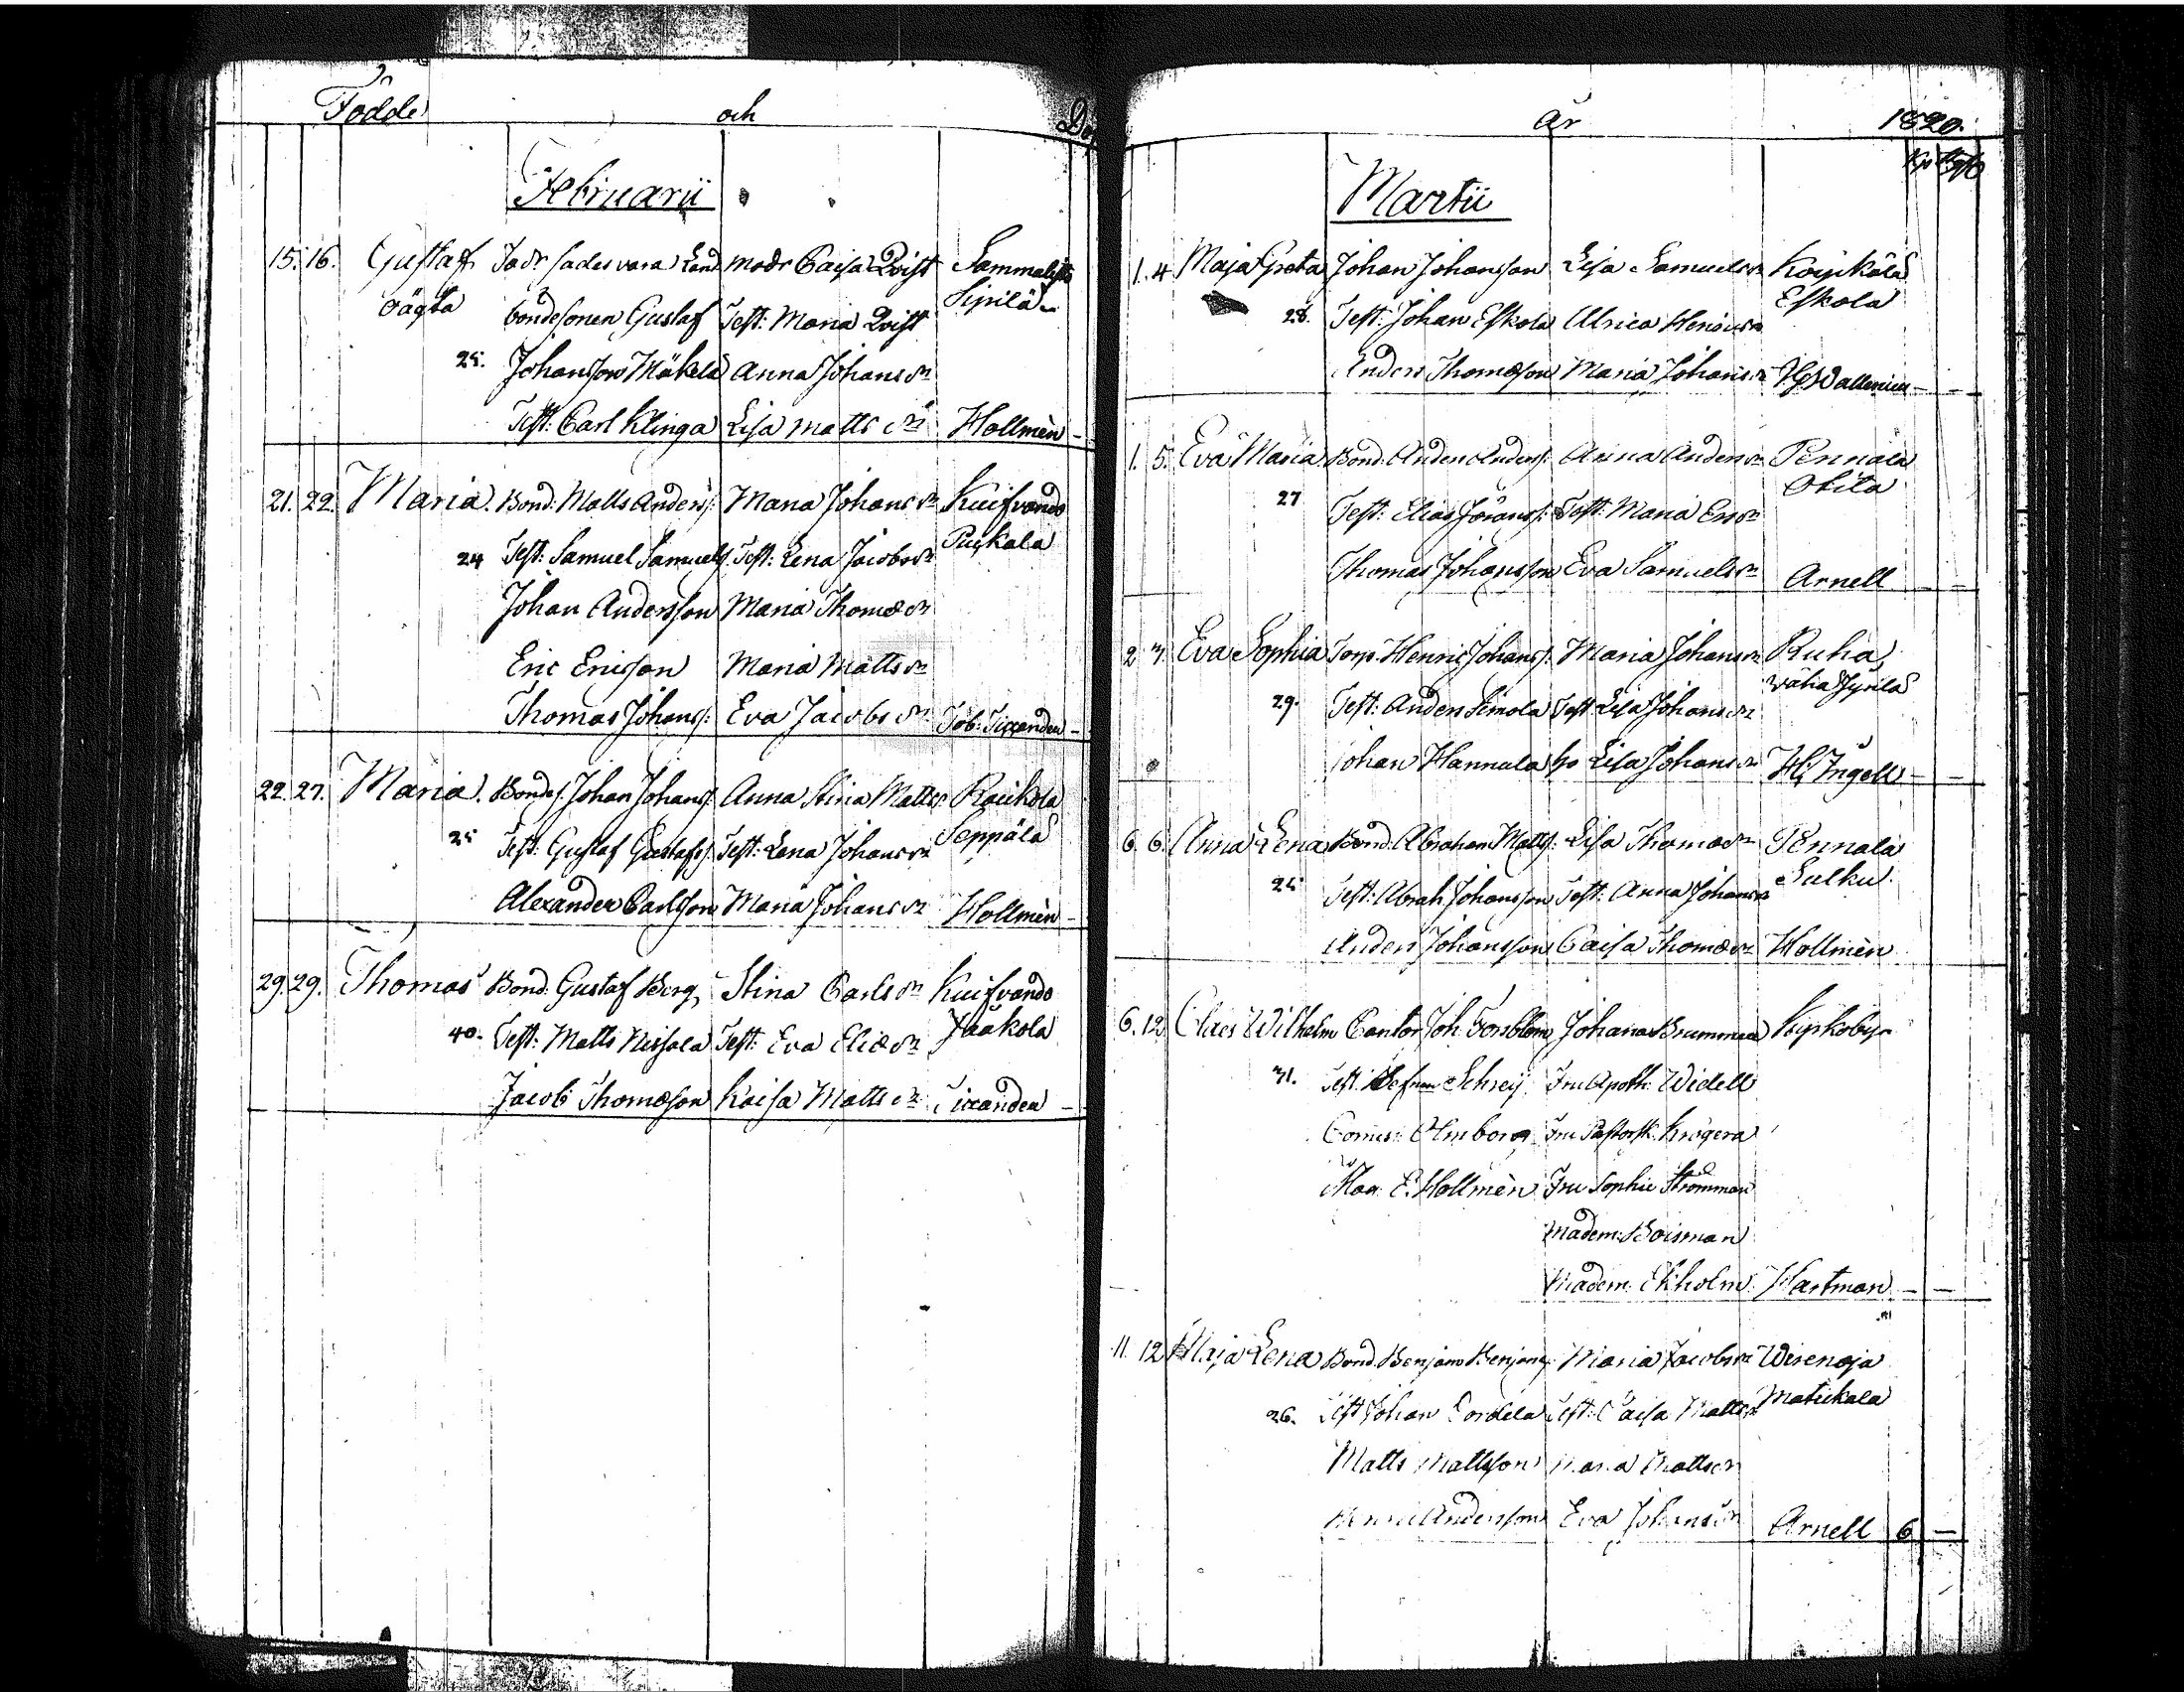 Födde och
Februarii
15. 16. Gustaf Fadr sades vara Land Modr Caisa Qvist Sammalisto
oägta bondesonen Gustaf Test: Maria Qvist Sipilä
25. Johansson Mäkelä Anna Johans dr
Test: Carl Klinga Lisa Matts dr Hollmèn
21. 22. Maria. Bond: Matts Anderss: Maria Johans dr Kuifvando
24 Test: Samuel Samuels: Test: Lena Jacobs dr Puskala
Johan Andersson Maria Thomæ dr
Eric Ericsson Maria Matts dr
Thomas Johanss: Eva Jacobs dr Job: Ticcander
22. 27. Maria. Bondes. Johan Johanss: Anna Stina Matts Raukola
25 Test: Gustaf Gustafss: Test: Lena Johans dr Seppälä
Alexander Carlsson Maria Johans dr Hollmèn
29. 29. Thomas Bond: Gustaf Berg, Stina Carls dr Kuifvando
40. Test: Matts Nissala Test: Eva Eliæ dr Jaakola
Jacob Thomæson Kaisa Matts dr Ticcander
År 1820.
Martii
1. 4 Maja Greta Johan Johansson Lisa Samuels dr Koipkälä
28. Test: Johan Eskola Ulrica Henrics dr Eskola
Anders Thomæson Maria Johans dr Hj Wallenius
1. 5. Eva Maria Bond: Anders Anders: Anna Anders dr Pennala
27 Test: Elias Jörans: Test: Maria Ers dr Okila
Thomas Johansson Eva Samuels dr Arnell
2 7. Eva Sophia Torp. Henric Johans: Maria Johans dr Ruha
29. Test: Anders Simola Test: Lisa Johans dr Wähä Jyrilä
Johan Hannula ho Lisa Johans dr Hj Ingell
6. 6. Anna Lena Bond: Abraham Matts: Lisa Thomæ dr Pennala
25 Test: Abrah Johansson Test: Anna Johans dr Sulku
Anders Johansson Caisa Thomæ dr Hollmèn
6. 12 Claes Wilhelm Cantor Joh: Forsblom Johana Brummer Kyrkobyn
31. Test: Schreij Fru Apoth: Widell
Comis: Olmborg Fru Pastorsk. Krogera
Mag: E. Hollmèn Fru Sophie Strömman
Madem: Boisman
Madem: Ekholm Hartman
11. 12 Maja Lena Bond. Benjam Benjams: Maria Jacobs dr Wirenoja
26. Test Johan Cordela Test: Caisa Matts dr Matukala
Matts Mattsson Maria Matts dr
Henric Andersson Eva Johans dr Arnell 6